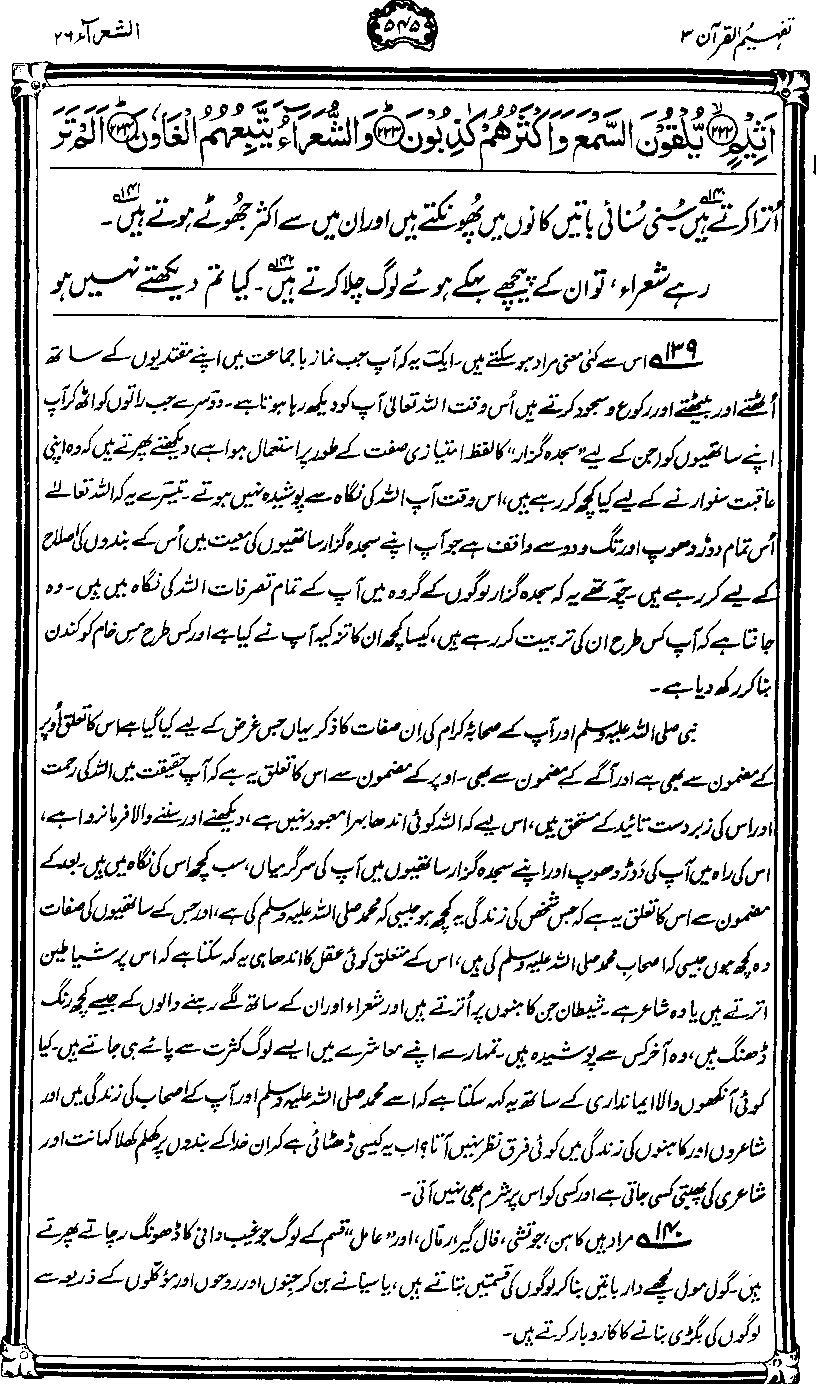 تفہیم القرآن ۳
۵۴۵
الشعرآء ۲۶
اَثِیْمٍ ﴿۲۲۲﴾ یُّلْقُوْنَ السَّمْعَ وَاَکْثَرُهُمْ کٰذِبُوْنَ ﴿۲۲۳﴾ وَالشُّعَرَآءُ یَتَّبِعُهُمُ الْغَاوٗنَ ﴿۲۲۴﴾ اَلَمْ تَرَ
اُترا کرتے ہیں۱۴۰۔ سُنی سُنائی باتیں کانوں میں پھونکتے ہیں اور ان میں سے اکثر جھُوٹے ہوتے ہیں۱۴۱۔
رہے شعراء، تو ان کے پیچھے بہکے ہوئے لوگ چلا کرتے ہیں۱۴۲۔ کیا تم دیکھتے نہیں ہو
۱۳۹ اس سے کئی معنی مراد ہو سکتے ہیں۔ ایک یہ کہ آپ جب نماز باجماعت میں اپنے مقتدیوں کے ساتھ
اُٹھتے اور بیٹھتے اور رکوع و سجود کرتے ہیں اُس وقت اللہ تعالیٰ آپ کو دیکھ رہا ہوتا ہے۔ دوسرے جب راتوں کو اٹھ کر آپ
اپنے ساتھیوں کو (جن کے لیے "سجدہ گزار" کا لفظ امتیازی صفت کے طور پر استعمال ہوا ہے) دیکھتے پھرتے ہیں کہ وہ اپنی
عاقبت سنوارنے کے لیے کیا کچھ کر رہے ہیں، اس وقت آپ اللہ کی نگاہ سے پوشیدہ نہیں ہوتے۔ تیسرے یہ کہ اللہ تعالےٰ
اُس تمام دوڑ دھوپ اور تگ و دو سے واقف ہے جو آپ اپنے سجدہ گزار ساتھیوں کی معیت میں اُس کے بندوں کی اصلاح
کے لیے کر رہے ہیں۔ چوتھے یہ کہ سجدہ گزار لوگوں کے گروہ میں آپ کے تمام تصرفات اللہ کی نگاہ میں ہیں۔ وہ
جانتا ہے کہ آپ کس طرح ان کی تربیت کر رہے ہیں، کیسا کچھ ان کا تزکیہ آپ نے کیا ہے اور کس طرح مسِ خام کو کندن
بنا کر رکھ دیا ہے۔
نبی صلی اللہ علیہ وسلم اور آپ کے صحابۂ کرام کی اِن صفات کا ذکر یہاں جس غرض کے لیے کیا گیا ہے اس کا تعلق اُوپر
کے مضمون سے بھی ہے اور آگے کے مضمون سے بھی۔ اوپر کے مضمون سے اس کا تعلق یہ ہے کہ آپ حقیقت میں اللہ کی رحمت
اور اس کی زبردست تائید کے مستحق ہیں، اس لیے کہ اللہ کوئی اندھا بہرا معبود نہیں ہے، دیکھنے اور سننے والا فرمانروا ہے،
اس کی راہ میں آپ کی دَوڑ دھوپ اور اپنے سجدہ گزار ساتھیوں میں آپ کی سرگرمیاں، سب کچھ اس کی نگاہ میں ہیں۔ بعد کے
مضمون سے اس کا تعلق یہ ہے کہ جس شخص کی زندگی یہ کچھ ہو جیسی کہ محمد صلی اللہ علیہ وسلم کی ہے، اور جس کے ساتھیوں کی صفات
وہ کچھ ہوں جیسی کہ اصحابِ محمد صلی اللہ علیہ وسلم کی ہیں، اس کے متعلق کوئی عقل کا اندھا ہی یہ کہہ سکتا ہے کہ اس پر شیاطین
اترتے ہیں یا وہ شاعر ہے۔ شیطان جن کاہنوں پر اُترتے ہیں اور شعراء اور ان کے ساتھ لگے رہنے والوں کے جیسے کچھ رنگ
ڈھنگ ہیں، وہ آخر کس سے پوشیدہ ہیں۔ تمہارے اپنے معاشرے میں ایسے لوگ کثرت سے پائے ہی جاتے ہیں۔ کیا
کوئی آنکھوں والا ایمانداری کے ساتھ یہ کہہ سکتا ہے کہ اسے محمد صلی اللہ علیہ وسلم اور آپ کے اصحاب کی زندگی میں اور
شاعروں اور کاہنوں کی زندگی میں کوئی فرق نظر نہیں آتا؟ اب یہ کیسی ڈھٹائی ہے کہ ان خدا کے بندوں پر کھلم کھلا کہانت اور
شاعری کی پھبتی کسی جاتی ہے اور کسی کو اس پر شرم بھی نہیں آتی۔
۱۴۰ مراد ہیں کاہن، جوتشی، فال گیر، رمّال، اور "عامل" قسم کے لوگ جو غیب دانی کا ڈھونگ رچاتے پھرتے
ہیں۔ گول مول لچھے دار باتیں بنا کر لوگوں کی قسمتیں بتاتے ہیں، یا سیانے بن کر جنوں اور روحوں اور مؤکلوں کے ذریعہ سے
لوگوں کی بگڑی بنانے کا کاروبار کرتے ہیں۔